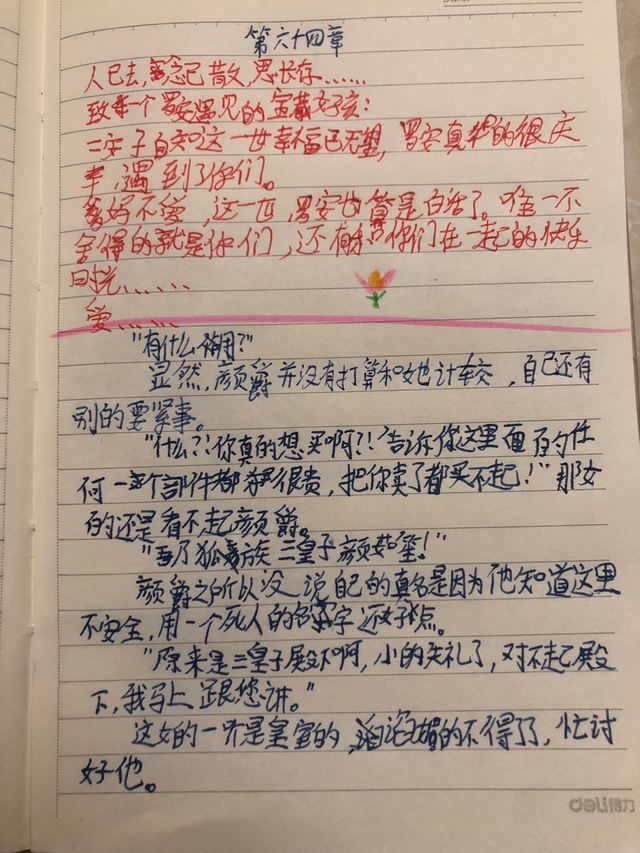 第六十四章
人已去,意念已散,思长存……
致每一个罗安遇见的宝藏女孩:
罗安子自知这一世幸福已无望,罗安真的很庆
幸,遇到了你们。
爹妈不爱,这一世,罗安也算是白活了。唯一不
舍得的就是你们,还有和你们在一起的快乐
时光……
爱……
"有什么用?"
显然,颜爵并没有打算和她计较,自己还有
别的要紧事。
"什么?!你真的想买啊?!告诉你这里面的任
何一个部件都很贵,把你卖了都买不起!"那女
的还是看不起颜爵。
"吾乃狐族三皇子颜如笙!"
颜爵之所以没说自己的真名是因为他知道这里
不安全,用一个死人的名字还好点。
"原来是三皇子殿下啊,小的失礼了,对不起殿
下,我马上跟您讲。"
这女的一听是皇室的,谄媚的不得了,忙讨
好他。
deli得力